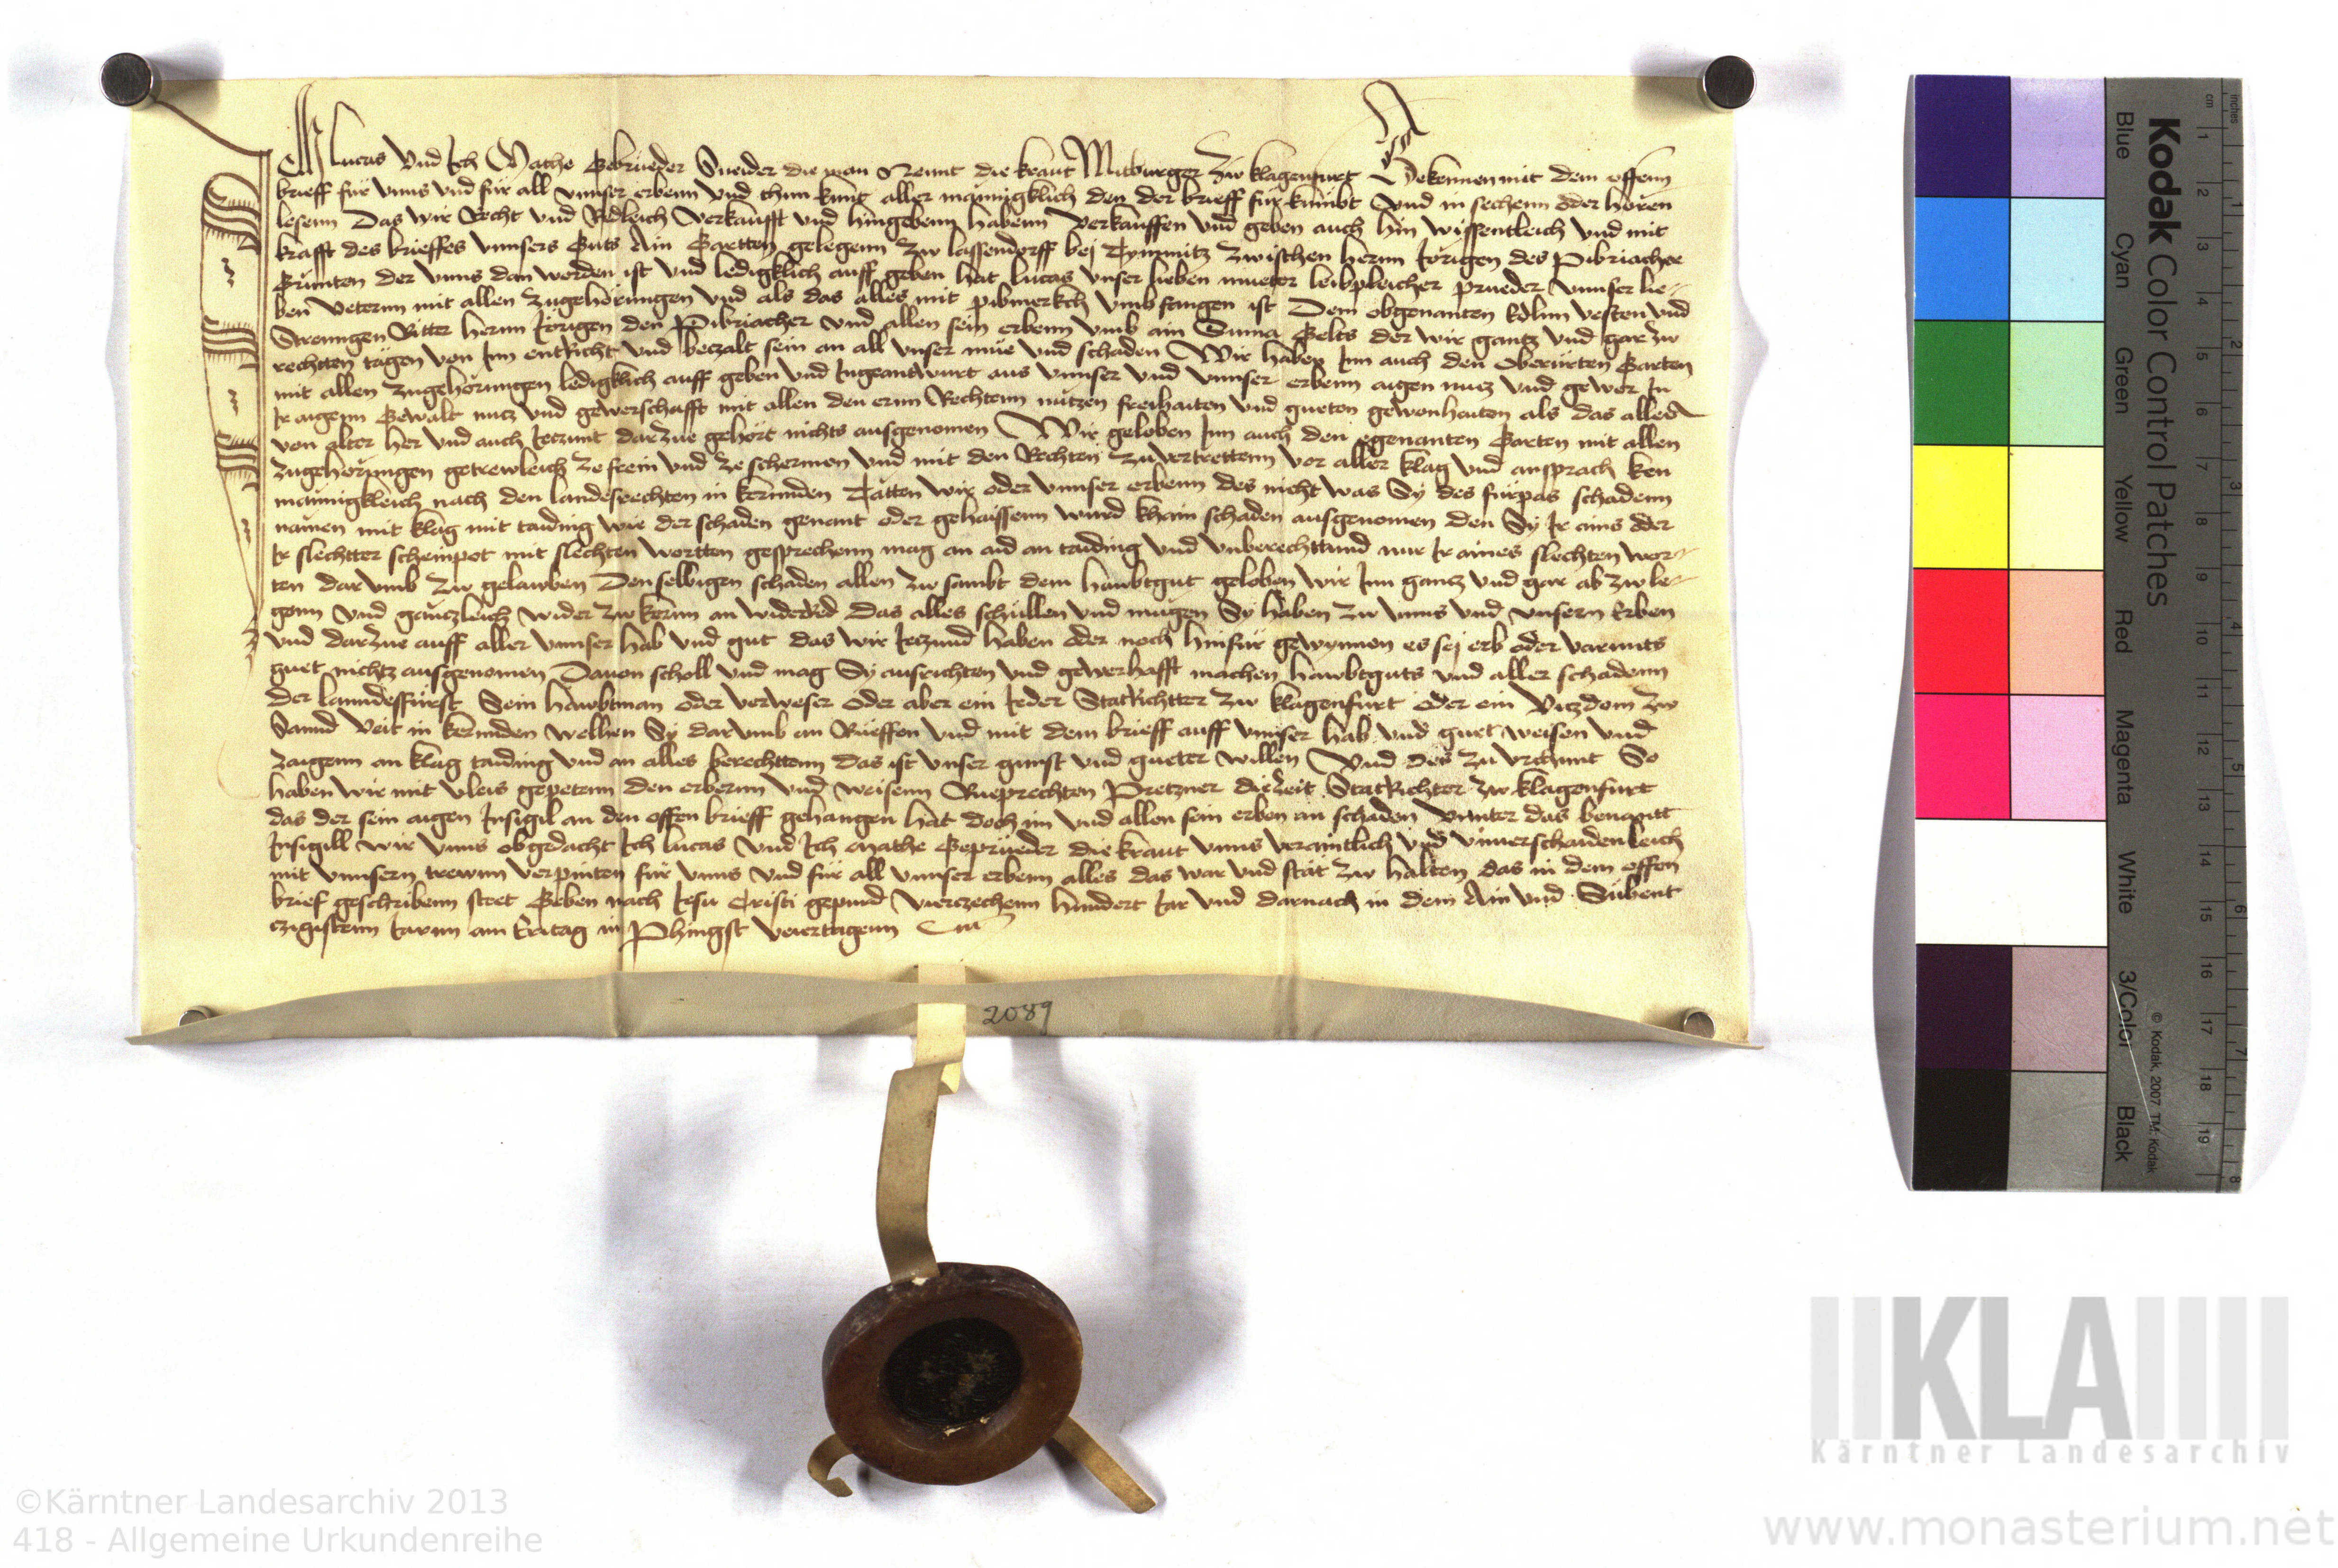 Ich lucas Vnd Ich Mathe Gebrueder Sneider die man Nennt die kraut Mitburger Zw klagenfurt Bekennen mit dem offenn
brieff für vnns vnd für all vnnser erbenn Vnd thun kunt aller mannigklich den der brieff für kumbt Vnd in sechenn oder horen
lesenn Das wir Recht vnd Redleich Verkaufft vnd hingebenn habenn Verkauffen vnd geben auch hin wissentleich vnd mit
krafft des brieffes vnnsers Guts Ain Gartten gelegenn Zw lassendorff bej Tymnitz Zwischen hernn Jorigen des Pibriacher
Grunten der vnns dan worden ist vnd ledigklich auff geben hat lucas vnser lieben mueter leibpleicher prueder vnnser lie-
ben Veterm mit allen Zugehorungen vnd als das alles mit pibmerkch vmbfangen ist Dem obgenanten Edlnn vesten vnd
Strenngen Ritter hernn Jorigen den Pibriacher vnd allen sein erbenn vmb ain Suma Gelts der wir gantz vnd gar zw
rechtten tagen von Inn entRicht vnd betzalt sein an all vnser mue vnd schaden Wir haben Inn auch den Oberürten Garten
mit allen Zugehörungen ledigklich auff geben vnd Ingeantwurt aus vnnser vnd vnnser erbenn aigen nucz vnd gewer In
Ir aigenn Gewalt nucz vnd gewerschafft mit allen den ernn Rechtenn nutzen freihaiten vnd gueten gewonhaiten als das alles
von alter her vnd auch Ieczunt darzue gehört nichts ausgenomen Wir geloben Inn auch den egenanten Garten mit allen
Zugehorungen getrewleich Ze frein vnd Ze schermen vnd mit den Rechten Zuuertrettenn vor aller klag vnd ansprach ken
mannigkleich nach den landesrechten in kernnden Tatten wir oder vnnser erbenn des nicht was Sy des fürpas schadenn
namen mit klag mit taiding wie der schaden genant oder gehaissenn wurd khain schaden ausgenomen den Sy Ir ains oder
Ir slechtter scheinpot mit slechten wortten gesprechenn mag an aid an taiding vnd vnberechttund nur Ir aines slechten wor-
ten dar vmb Zw gelauben Denselbigen schaden allen Zw sambt dem haubtgut geloben wir Inn gancz vnd gar ab zw le-
genn vnd genczleich wider zw kernn an widerRed Das alles schullen vnd mugen Sy haben zu vnns vnd vnsern Erben
vnd darzue auff aller vnnser hab vnd gut das wir Ieczund haben oder noch hinfür gewynnen es sej erb oder varunts
guet nichtz ausgenomen Dauon scholl vnd mag Sy ausrichten vnd gewerhafft machen haubtguts vnd aller schadenn
der lanndesfürst Sein haubtman oder verweser oder aber ein Ieder StatRichtter Zw klagenfurt oder ein Viczdom Zw
Sannd Veit in kernnden wellhen Sy darvmb an Rueffen vnd mit dem brieff auff vnnser hab vnd guet weisen vnd
zaigenn an klag taiding vnd an alles berechttenn das ist vnser gunst vnd gueter willen Vnd des zu vrchunt So
haben wir mit vleis gepetenn den erbernn vnd weisenn Rueprechten Pretzner diezeit StatRichter Zw klagenfurt
das der sein aigen Insigil an den offen brieff gehangen hat doch im vnd allen sein erben an schaden vnnter das benantt
Insigill wir vnns obgedacht Ich lucas vnd Ich mathe Geprueder die kraut vnns veraintlich vnd vnuerschaidenleich
mit vnnsern trewnn verpinten für vnns vnd für all vnnser erbenn alles das war vnd stät zw halten das in dem offen
brief geschribenn steet Geben nach Iesu Cristi gepurd vierczechenn hundert Iar vnd darnach in dem Ain vnd Sibent
czigistenn Iarnn am Eritag in Phingst veiertagenn
2089
Kodak Color Control Patches
Blue Cyan Green Yellow Red Magenta White 3/Color Black
© Kodak, 2007 TM: Kodak
cm 1 2 3 4 5 6 7 8 9 10 11 12 13 14 15 16 17 18 19
inches 1 2 3 4 5 6 7 8
KLA
Kärntner Landesarchiv
©Kärntner Landesarchiv 2013
418 - Allgemeine Urkundenreihe
www.monasterium.net